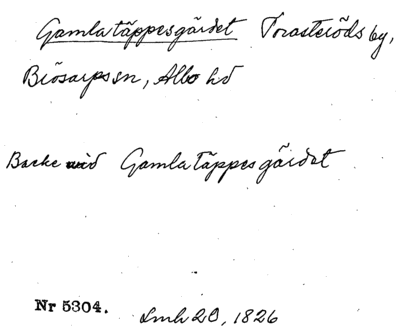 Gamla täppesgärdet Torasteröds by,
Brösarps sn, Albo hd
Backe vid Gamla täppesgärdet
Nr 5304.
Lmh 20, 1826